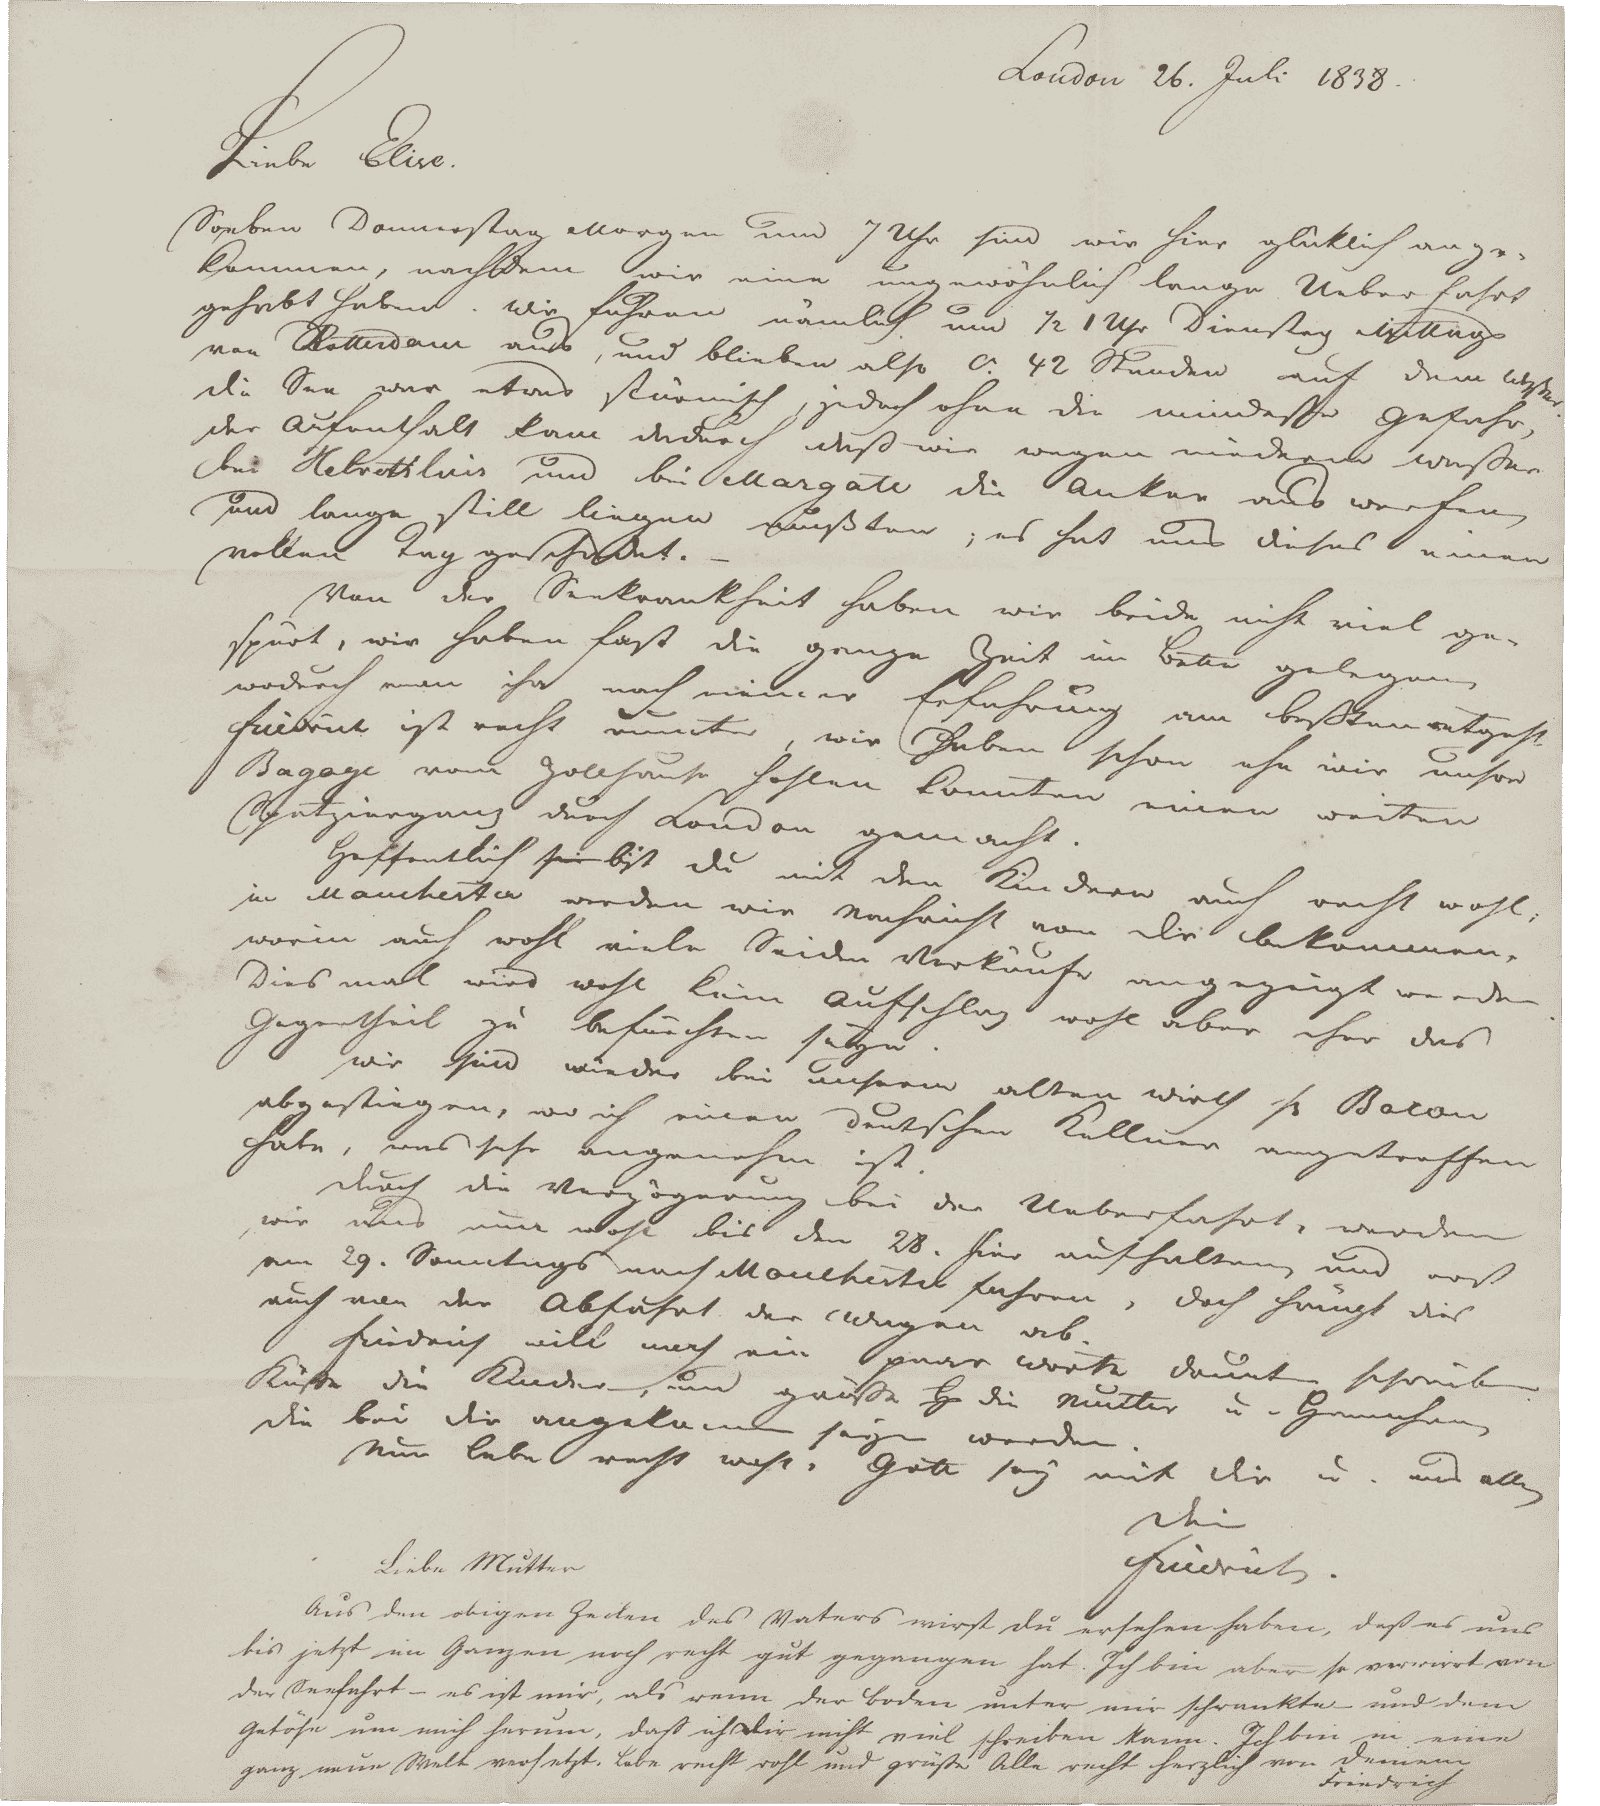 London 26. Juli 1838.
Liebe Elise.
Soeben Donnerstag Morgen um 7 Uhr sind wir hier glüklich ange-
kommen, nachdem wir eine ungewöhnlich lange Ueberfahrt
gehabt haben. Wir fuhren nämlich um ½ 1 Uhr Dienstag Mittags
von Rotterdam aus, und blieben also c. 42 Stunden auf dem Wasser.
die See war etwas stürmisch, jedoch ohne die mindeste Gefahr,
der Aufenthalt kam dadurch daß wir wegen niederm Wasser
bei Helvoetsluis und bei Margate die Anker aus werfen
und lange still liegen mußten; es hat uns dieses einen
vollen Tag geschadet. –
Von der Seekrankheit haben wir beide nicht viel ge-
spürt, wir haben fast die ganze Zeit im Bette gelegen,
wodurch man ihr nach meiner Erfahrung am beßten entgeht.
Friedrich ist recht munter, wir haben schon ehe wir unsre
Bagage vom Zollhause hohlen konnten einen weiten
Spatziergang durch London gemacht.
Hoffentlich bist du mit den Kindern auch recht wohl;
in Manchester werden wir Nachricht von dir bekommen,
worin auch wohl viele Seiden Verkäufe angezeigt werden
Dies mal wird wohl kein Aufschlag wohl aber eher das
Gegentheil zu befürchten seyn.
Wir sind wieder bei unserm alten Wirth Bacon
abgestiegen, wo ich einen deutschen Kellner angetroffen
habe, was sehr angenehm ist.
Durch die Verzögerung bei der Ueberfahrt, werden
wir uns nun wohl bis den 28. hier aufhalten, und erst
am 29. Sonntags nach Manchester fahren, doch hängt dies
auch von der Abfahrt der Wagen ab.
Friedrich will noch ein paar Worte drunter schreiben
Küsse die Kinder, und grüße die Mutter u.
die bei dir angekommen seyn werden.
Nun lebe recht wohl. Gott sey mit dir u. uns allen
Dein
Friedrich.
Liebe Mutter
Aus den obigen Zeilen des Vaters wirst du ersehen haben, daß es uns
bis jetzt im Ganzen noch recht gut gegangen hat. Ich bin aber so verwirrt von
der Seefahrt – es ist mir, als wenn der Boden unter mir schwankte – und dem
Getöse um mich herum, daß ich Dir nicht viel schreiben kann. Ich bin in eine
ganz neue Welt versetzt. Lebe recht wohl und grüße Alle recht herzlich von Deinem
Friedrich